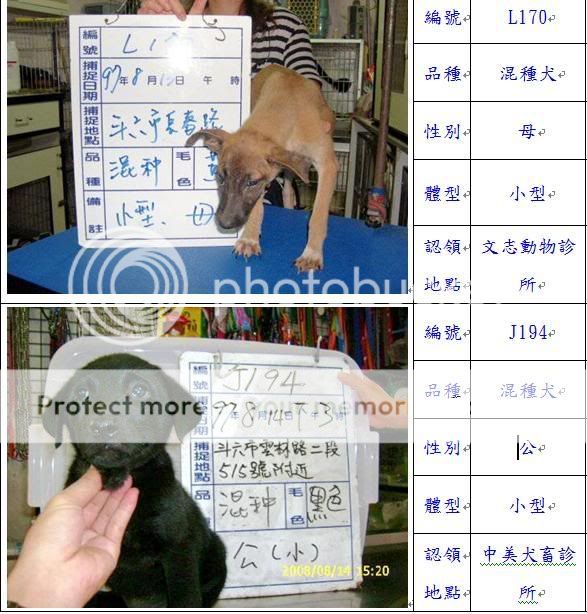 編號 L17
捕捉日期 97年8月13日 午 時
捕捉地點 斗六市長春路
品種 混种 毛色 黃
備註 小型、母
編號 L170
品種 混種犬
性別 母
體型 小型
認領地點 文志動物診所
photobucket
Protect more
編號 J194
97年8月14日下午3時
捕捉地點 斗六市雲林路二段
515號附近
品種 混种 毛色 黑色
公(小)
2008/08/14 15:20
編號 J194
品種 混種犬
性別 公
體型 小型
認領地點 中美犬畜診所